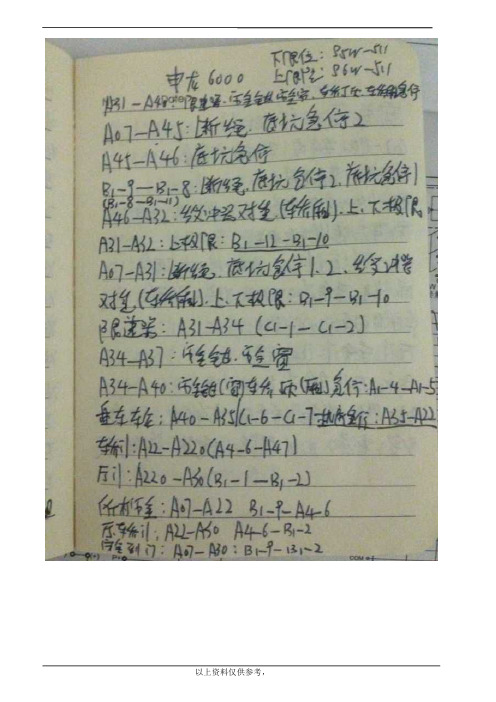 下限位: 85W-511
申龙6000 上限位: 86W-511
A31-A40: 限速器.安全钳
A07-A45: 断绳. 底坑急停2
A45-A46: 底坑急停
B1-9-B1-8: 断绳. 底坑急停2. 底坑急停1
(B1-8-B1-11)
A46-A32: 缓冲器对重. 上.下极限
A31-A32: 上极限: B1-12-B1-10
A07-A31: 断绳. 底坑急停1.2.缓冲器
对重. 上.下极限: B1-9-B1-10
限速器: A31-A34 (C1-1-C1-2)
A34-A37: 安全钳.安全窗
A34-A40: 急停: A1-4-A1-5
A40-A35 C1-6-C1-7 机房急停: A35-A22
轿门: A22-A220 (A4-6-A47)
厅门: A220-A50 (B1-1-B1-2)
所有安全: A07-A22 B1-9-A4-6
厅轿门: A22-A50 A4-6-B1-2
安全到门: A07-A50: B1-9-B1-2
COM
以上资料仅供参考，